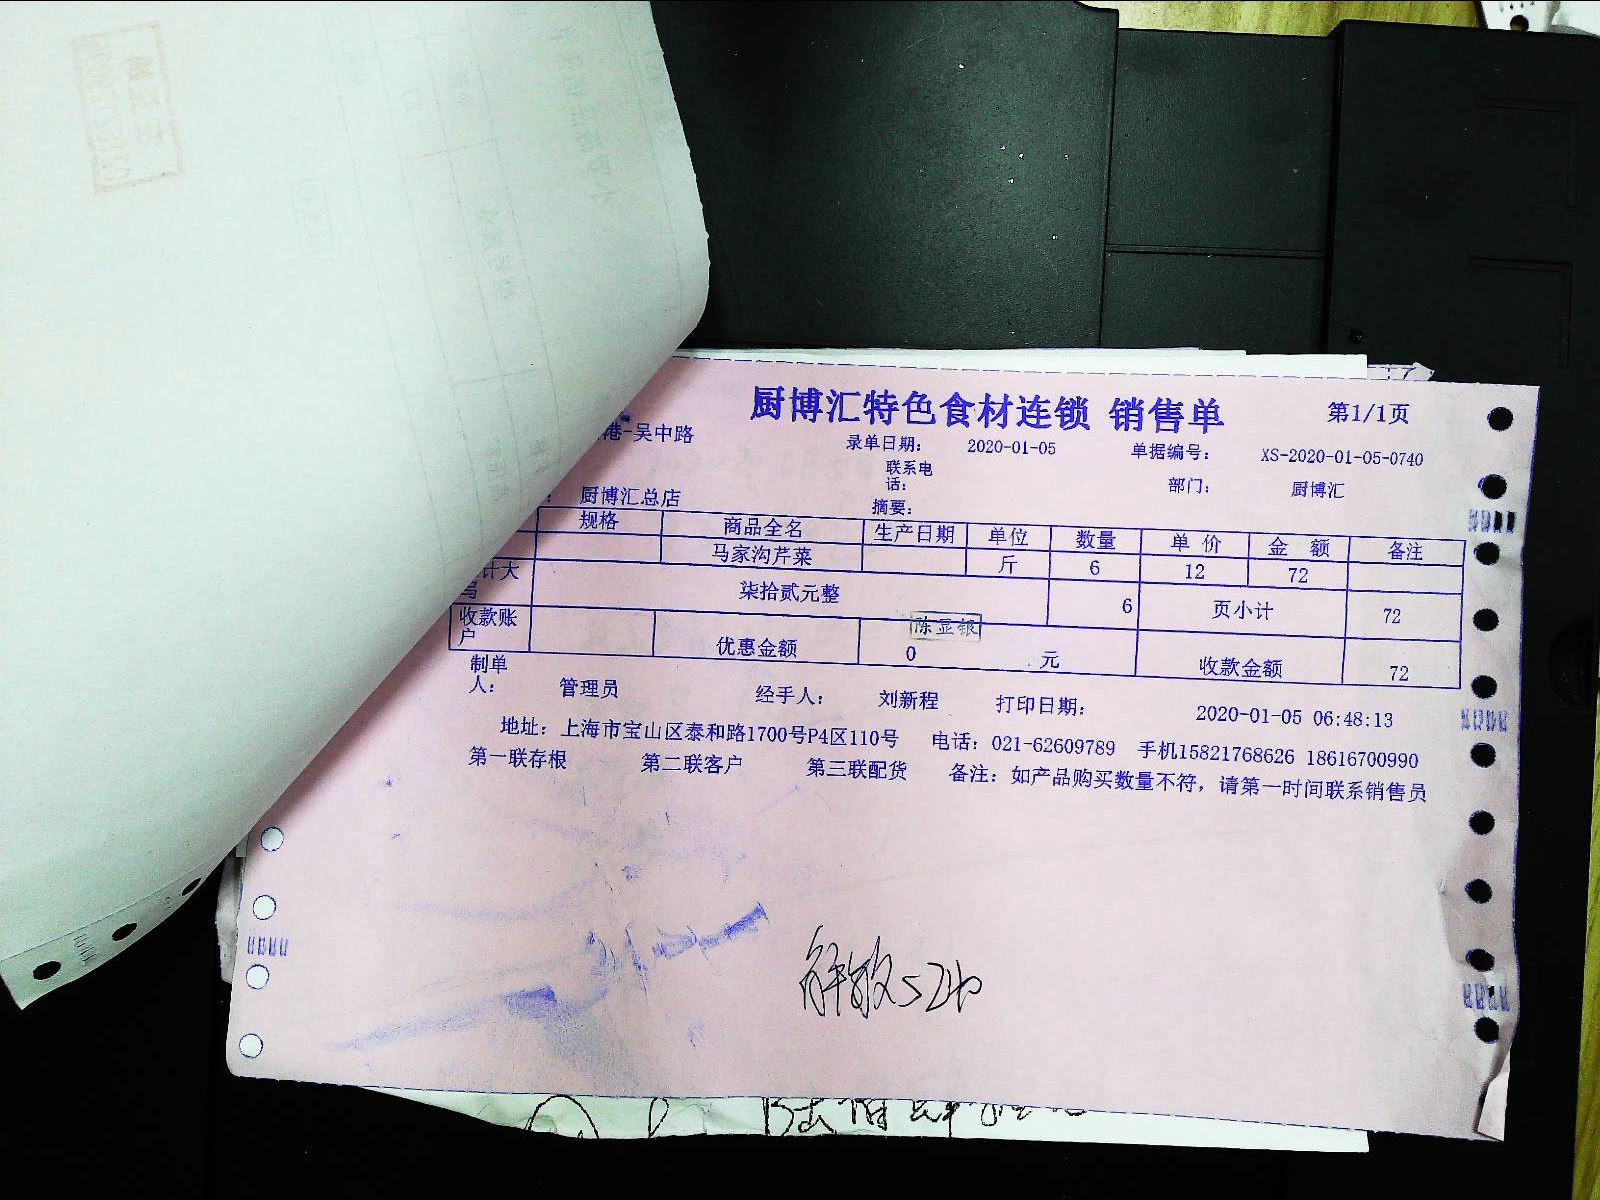 厨博汇特色食材连锁 销售单 第1/1页
港-吴中路 录单日期: 2020-01-05 单据编号: XS-2020-01-05-0740
联系电话: 部门: 厨博汇
: 厨博汇总店 摘要:
规格 商品全名 生产日期 单位 数量 单价 金额 备注
马家沟芹菜 斤 6 12 72
计大写 柒拾贰元整 6 页小计 72
陈显银
收款账户 优惠金额 0 元 收款金额 72
制单人: 管理员 经手人: 刘新程 打印日期: 2020-01-05 06:48:13
地址: 上海市宝山区泰和路1700号P4区110号 电话: 021-62609789 手机15821768626 18616700990
第一联存根 第二联客户 第三联配货 备注: 如产品购买数量不符, 请第一时间联系销售员